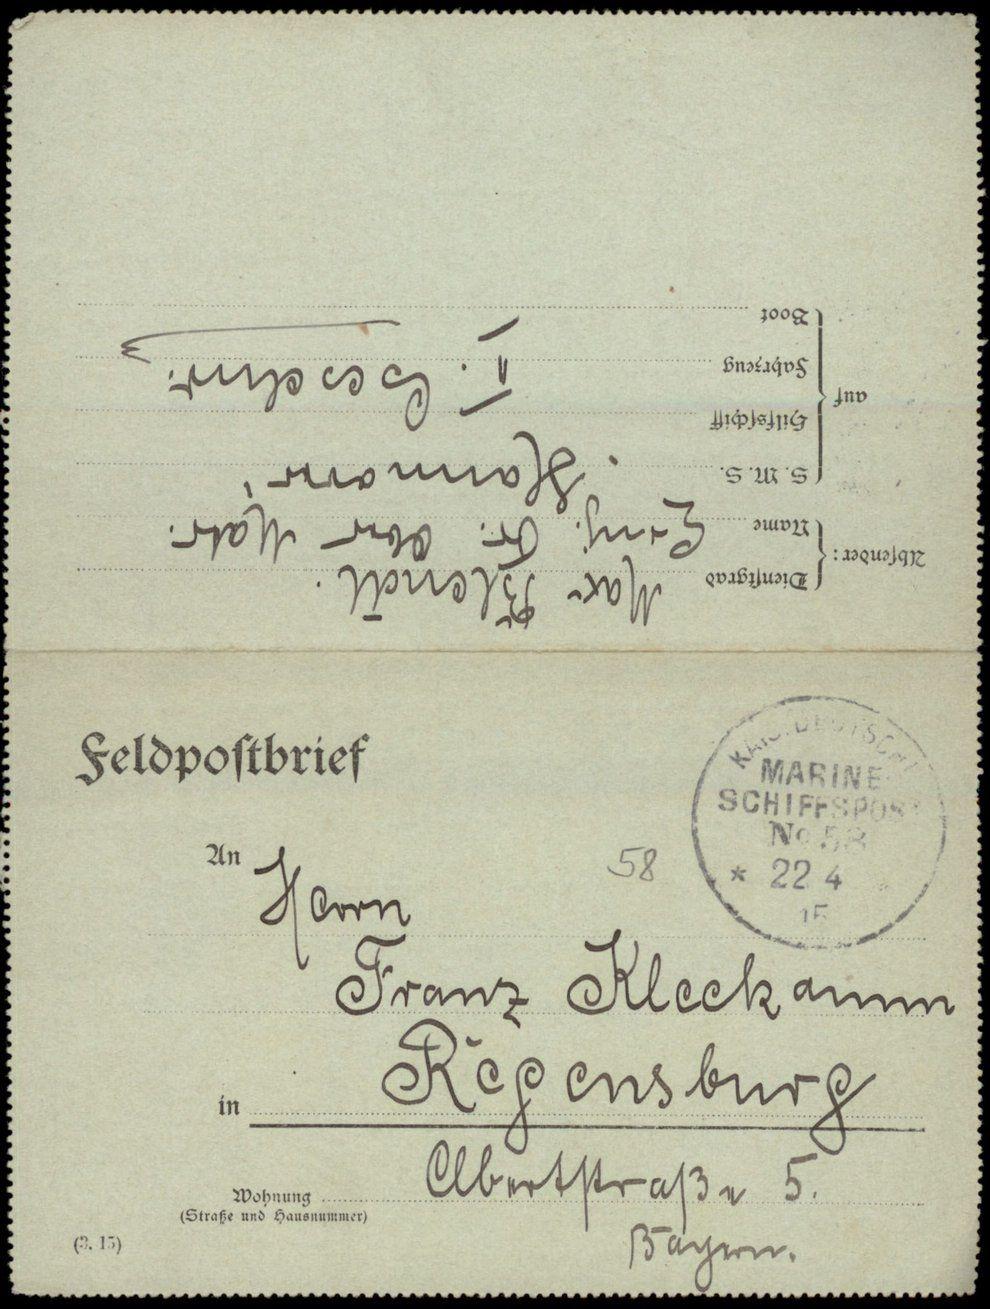 Absender:
Dienstgrad
Max Blendl.
Name
Einj. Fr. Ober Matr.
auf
S. M. S.
„Hannover“
Hilfsschiff
Fahrzeug
II. Geschw.
Boot
Feldpostbrief
KAIS. DEUTSCHE
MARINE
SCHIFFSPOST
No 58
* 22 4
15
58
An
Herrn
Franz Kleckamm
in Regensburg
Wohnung Albertstraße 5.
(Straße und Hausnummer)
Bayern.
(3. 15)